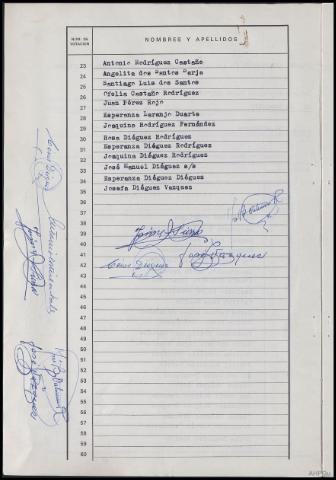 NUM. DE VOTACION
NOMBRE Y APELLIDOS
23 Antonio Rodríguez Castaño
24 Angelita dos Santos Barja
25 Santiago Luis dos Santos
26 Ofelia Castaño Rodríguez
27 Juan Pérez Rojo
28 Esperanza Laranjo Duarte
29 Joaquina Rodríguez Fernández
30 Rosa Diéguez Rodríguez
31 Esperanza Diéguez Rodríguez
32 Joaquina Diéguez Rodríguez
33 José Manuel Diéguez s/s
34 Esperanza Diéguez Diéguez
35 Josefa Diéguez Vazquez
36
37
38
39
40
41
42
43
44
45
46
47
48
49
50
51
52
53
54
55
56
57
58
59
60
José Vazquez
AHPOu